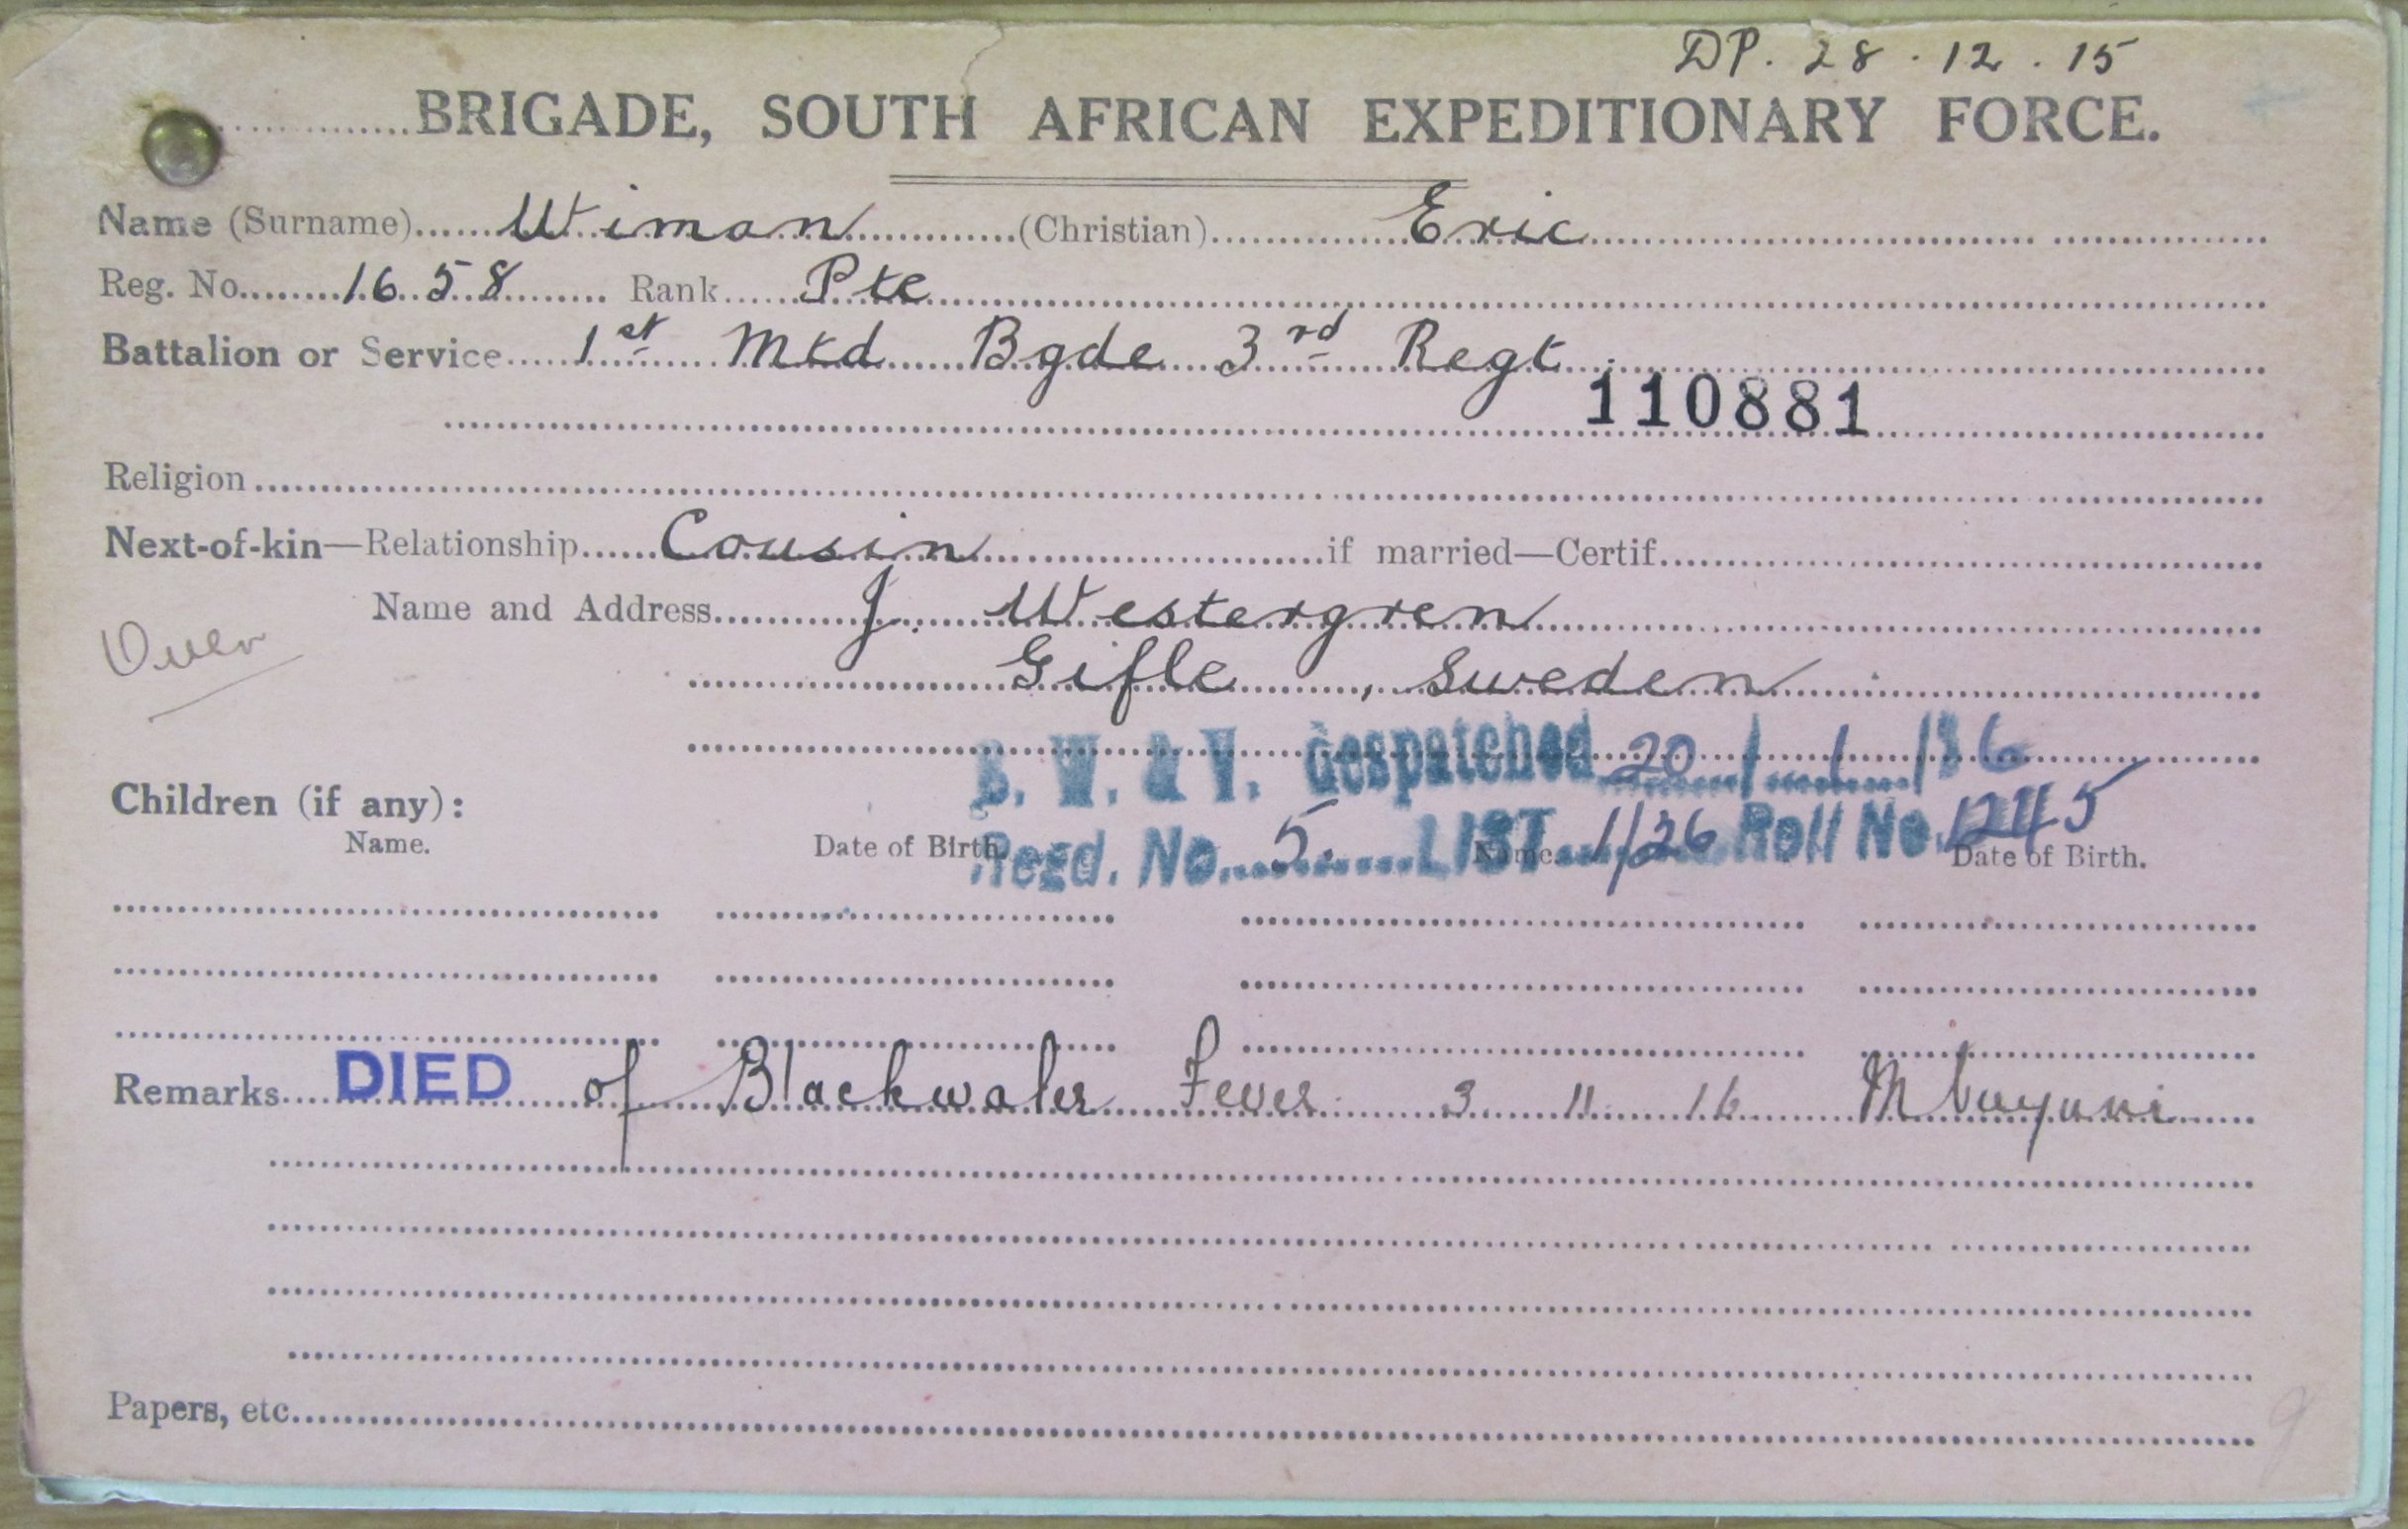 DP. 28 . 12 . 15
BRIGADE, SOUTH AFRICAN EXPEDITIONARY FORCE.
Name (Surname) Wiman (Christian) Eric
Reg. No. 1658 Rank Pte
Battalion or Service 1st Mtd Bgde 3rd Regt
110881
Religion
Next-of-kin—Relationship Cousin if married—Certif.
Name and Address J. Westergren
Over
Gifle, Sweden
B. W. & V. despatched 20/1/
Children (if any):
Regd. No. 5. LIST 1/26 Roll No. 1245
Name. Date of Birth. Name. Date of Birth.
Remarks DIED of Blackwater Fever 3 11 16 Mbuyuni
Papers, etc.